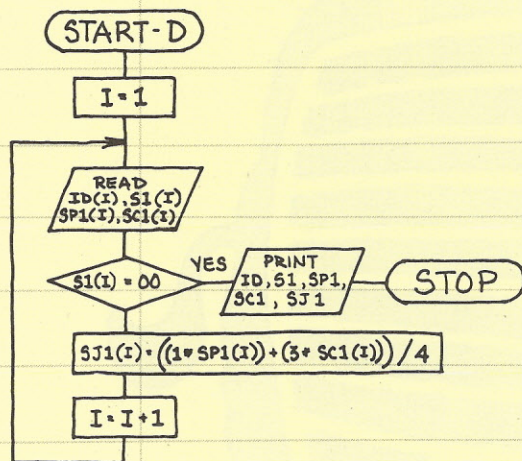 START-D
I = 1
READ
ID(I), S1(I)
SP1(I), SC1(I)
S1(I) = 00
YES
PRINT
ID, S1, SP1,
SC1, SJ1
STOP
SJ1(I) = ((1*SP1(I))+(3*SC1(I)))/4
I = I+1